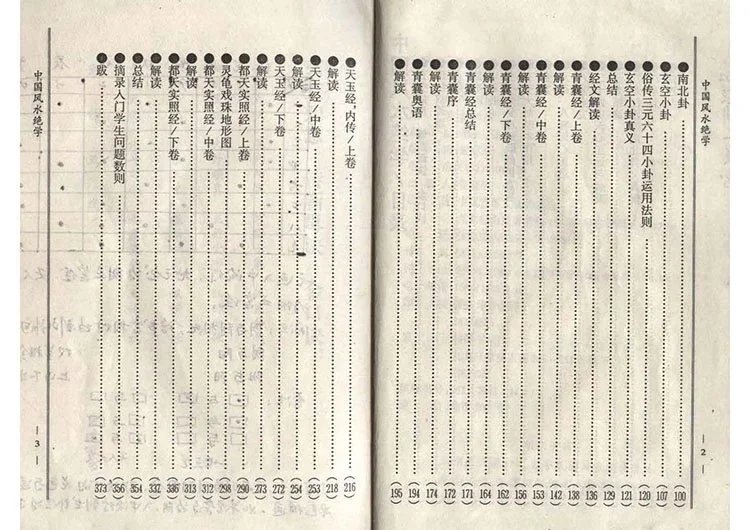 中国风水绝学
南北卦 (100)
玄空小卦 (107)
俗传三元六十四小卦运用法则 (120)
玄空小卦真义 (121)
总结 (129)
经文解读 (136)
青囊经/上卷 (138)
解读 (142)
青囊经/中卷 (153)
解读 (156)
青囊经/下卷 (162)
解读 (164)
青囊经总结 (171)
青囊序 (172)
解读 (174)
青囊奥语 (194)
解读 (195)
— 2 —
天玉经,内传/上卷 (216)
解读 (218)
天玉经/中卷 (253)
解读 (254)
天玉经/下卷 (272)
解读 (273)
都天实照经/上卷 (290)
灵龟戏珠地形图 (298)
都天实照经/中卷 (312)
解读 (313)
都天实照经/下卷 (336)
解读 (337)
总结 (354)
摘录入门学生问题数则 (356)
跋 (373)
中国风水绝学
— 3 —